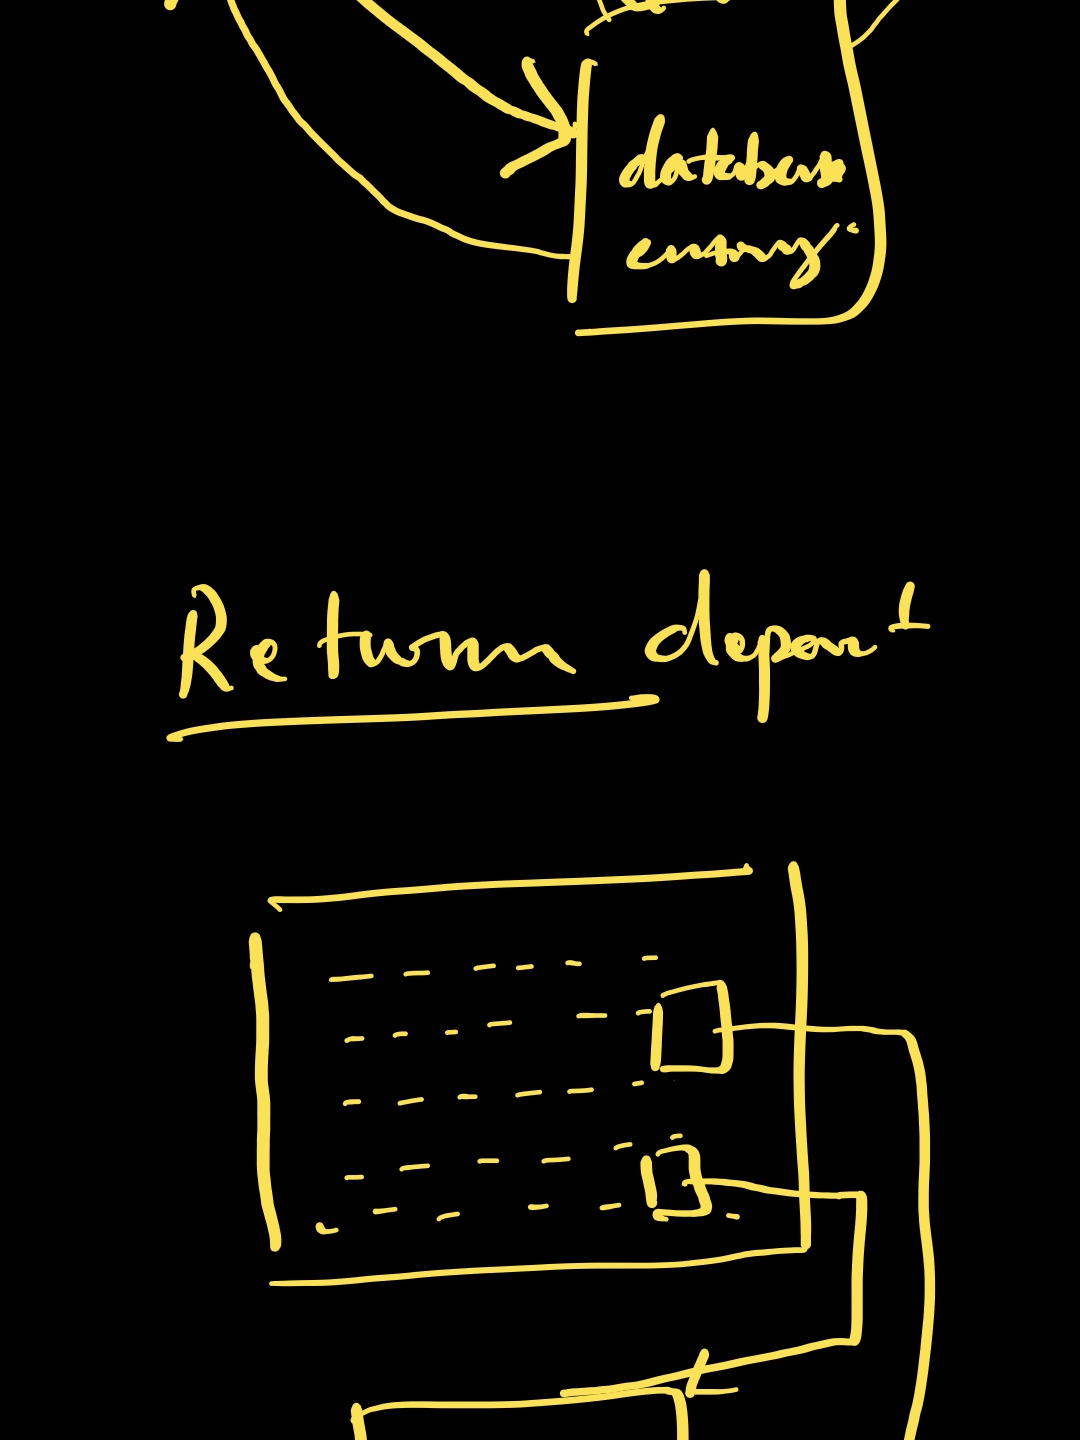 database
entry
Return depar¹